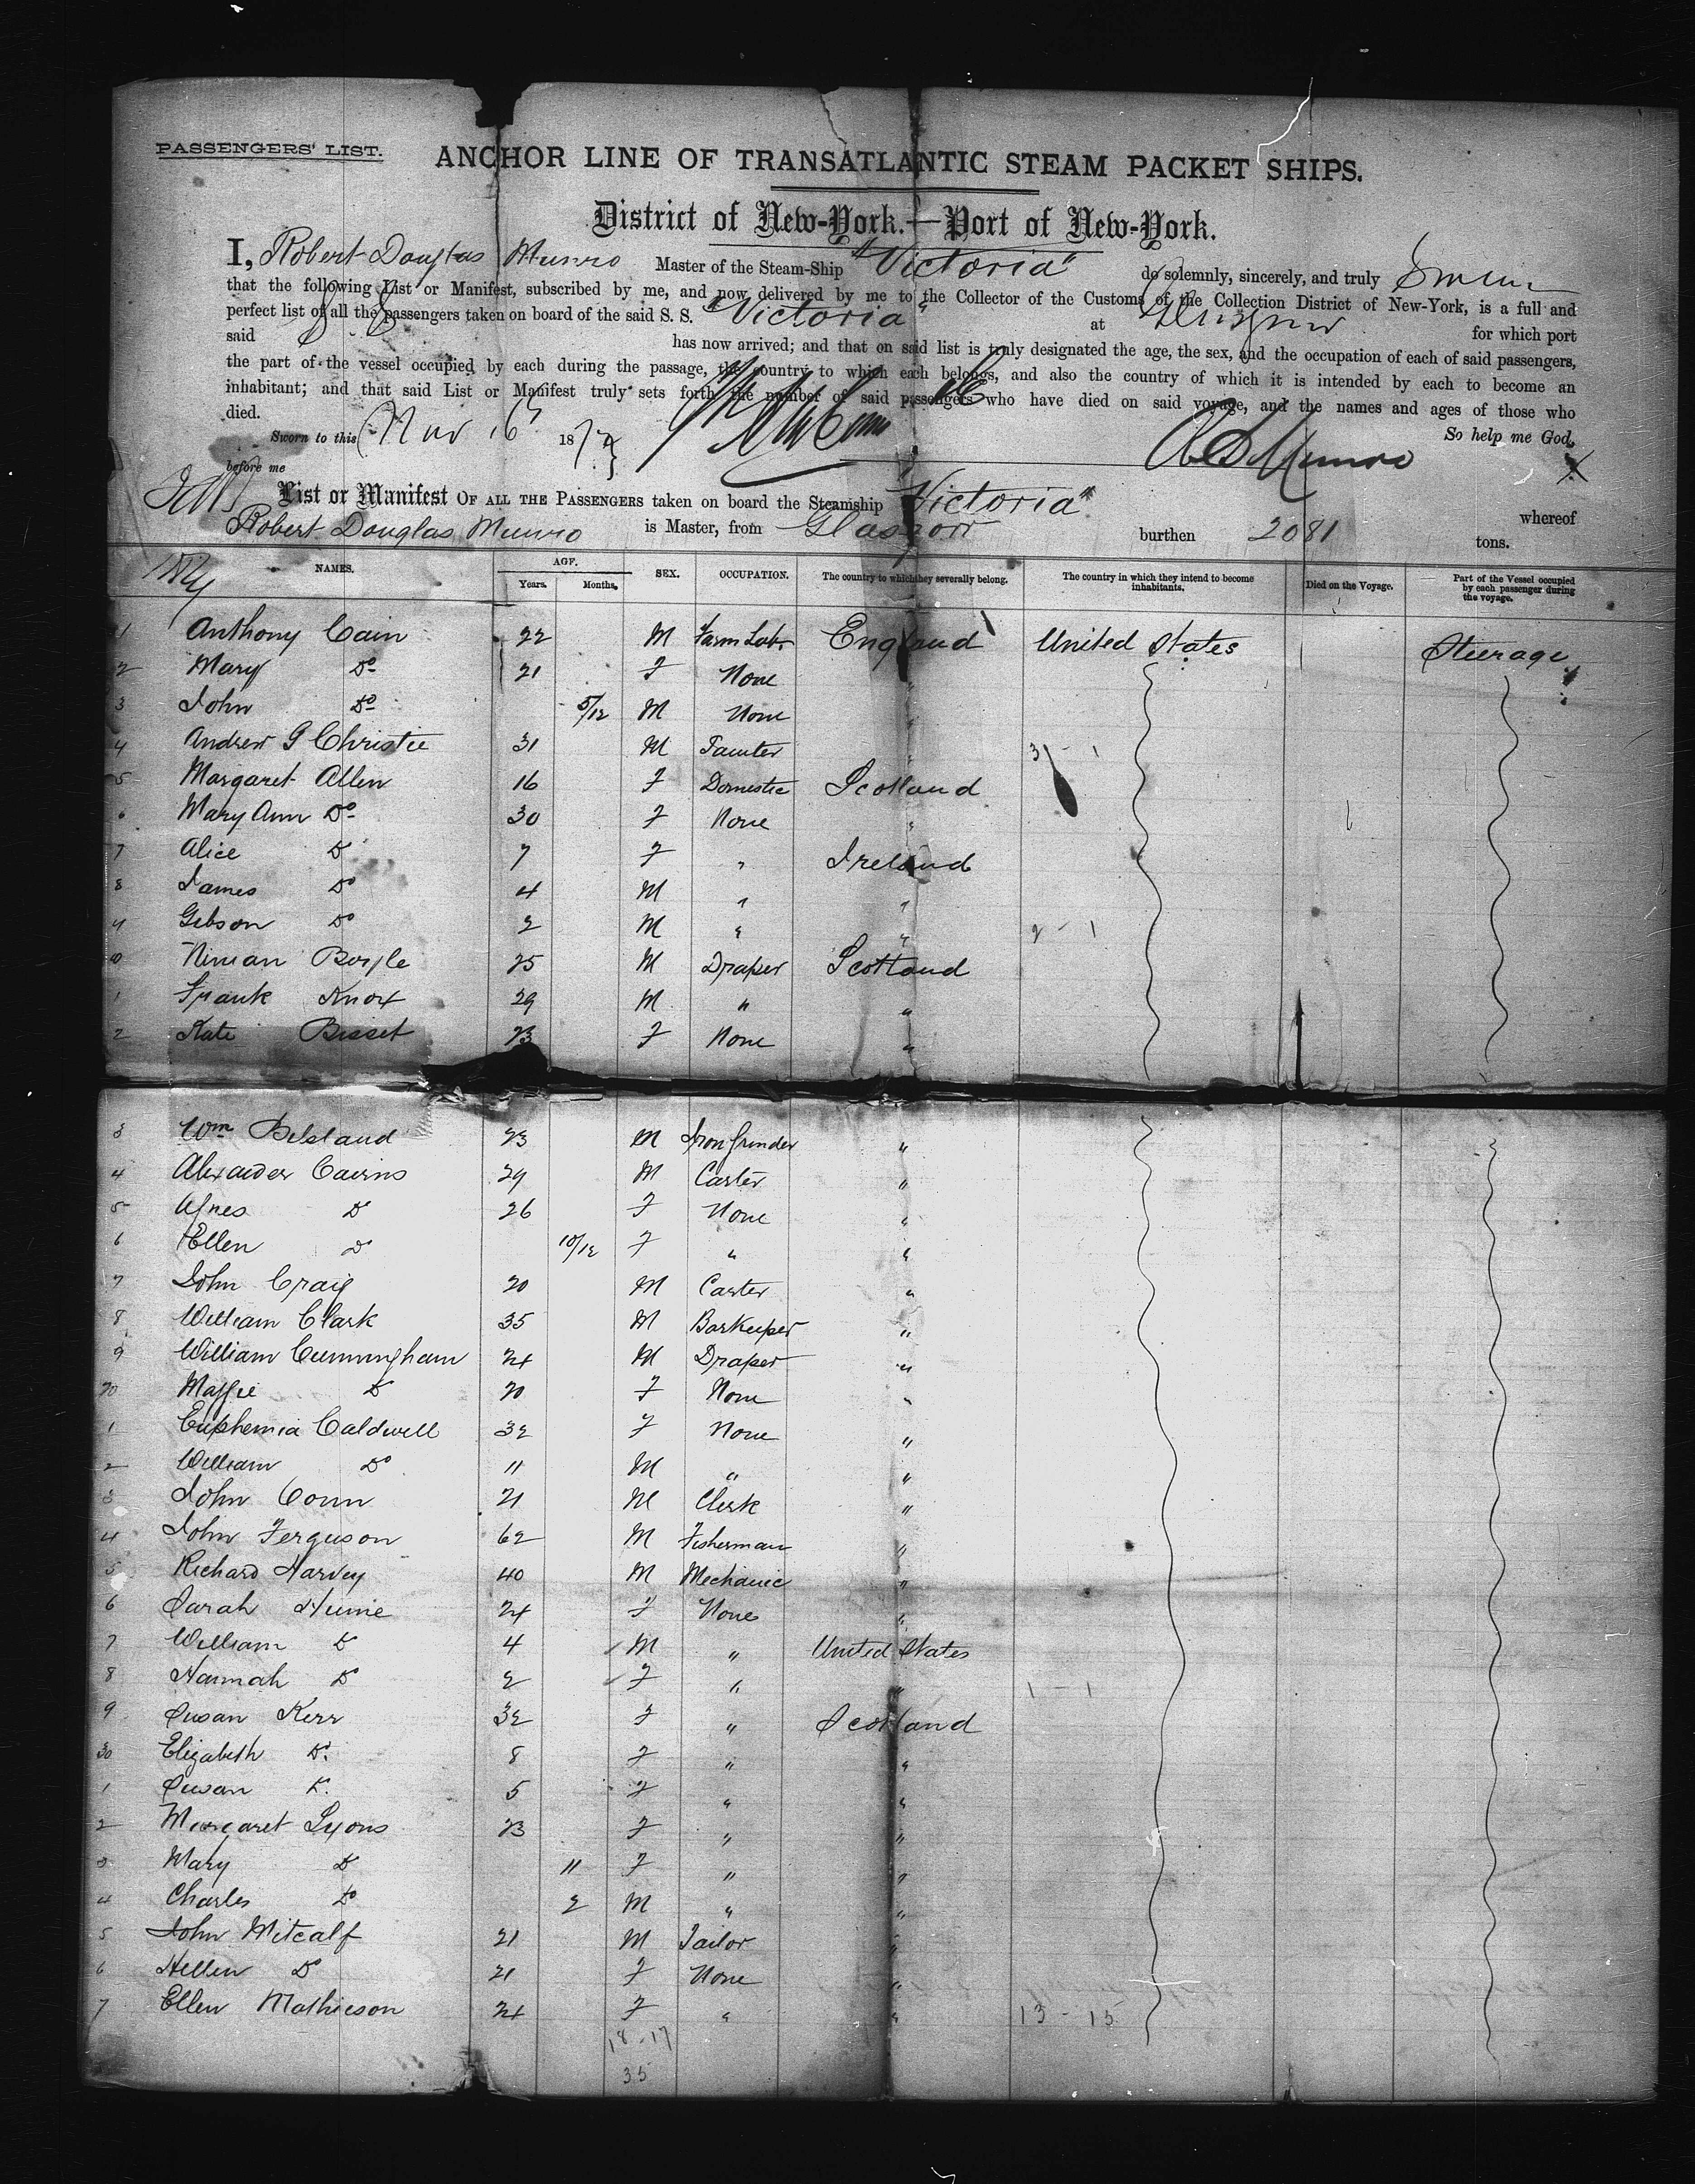 PASSENGERS' LIST.
ANCHOR LINE OF TRANSATLANTIC STEAM PACKET SHIPS.
District of New-York.—Port of New-York.
I, Robert Douglas Munro Master of the Steam-Ship "Victoria" do solemnly, sincerely, and truly Swear
that the following List or Manifest, subscribed by me, and now delivered by me to the Collector of the Customs of the Collection District of New-York, is a full and
perfect list of all the passengers taken on board of the said S. S. "Victoria" at Glasgow for which port
said S. S. has now arrived; and that on said list is truly designated the age, the sex, and the occupation of each of said passengers,
the part of the vessel occupied by each during the passage, the country to which each belongs, and also the country of which it is intended by each to become an
inhabitant; and that said List or Manifest truly sets forth the number of said passengers who have died on said voyage, and the names and ages of those who
died. So help me God.
Sworn to this Nov 16 187
before me R D Munro X
List or Manifest OF ALL THE PASSENGERS taken on board the Steamship "Victoria" whereof
Robert Douglas Munro is Master, from Glasgow burthen 2081 tons.
NAMES. AGE. Years. Months. SEX. OCCUPATION. The country to which they severally belong. The country in which they intend to become inhabitants. Died on the Voyage. Part of the Vessel occupied by each passenger during the voyage.
1 Anthony Cain 22 M Farm Labr England United States Steerage
2 Mary Do 21 F None "
3 John Do 5/12 M None "
4 Andrew G Christie 31 M Painter " 3 - 1
5 Margaret Allen 16 F Domestic Scotland
6 Mary Ann Do 30 F None "
7 Alice Do 7 F " Ireland
8 James Do 4 M " "
9 Gibson Do 2 M " " 2 - 1
10 Ninian Boyle 25 M Draper Scotland
1 Frank Knox 29 M " "
2 Kate Bisset 23 F None "
3 Wm Belsland 23 M Iron Grinder "
4 Alexander Cairns 29 M Carter "
5 Agnes Do 26 F None "
6 Ellen Do 10/12 F " "
7 John Craig 20 M Carter "
8 William Clark 35 M Barkeeper "
9 William Cunningham 24 M Draper "
20 Maggie Do 20 F None "
1 Euphemia Caldwell 32 F None "
2 William Do 11 M " "
3 John Conn 21 M Clerk "
4 John Ferguson 62 M Fisherman "
5 Richard Harvey 40 M Mechanic "
6 Sarah Hume 24 F None "
7 William Do 4 M " United States
8 Hannah Do 2 F " " 1 - 1
9 Susan Kerr 32 F " Scotland
30 Elizabeth Do 8 F " "
1 Susan K. 5 F " "
2 Margaret Lyons 23 F " "
3 Mary Do 11 F " "
4 Charles Do 2 M " "
5 John Mitcalf 21 M Tailor "
6 Hellen Do 21 F None "
7 Ellen Mathieson 24 F " " 13 - 15
18 - 17
35